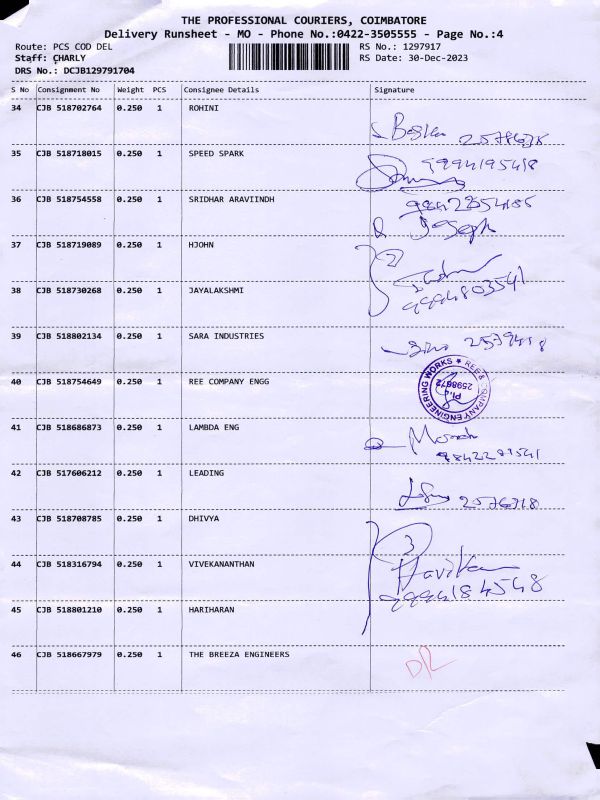 THE PROFESSIONAL COURIERS, COIMBATORE
Delivery Runsheet - MO - Phone No.:0422-3505555 - Page No.:4
Route: PCS COD DEL RS No.: 1297917
Staff: CHARLY RS Date: 30-Dec-2023
DRS No.: DCJB129791704
S No Consignment No Weight PCS Consignee Details Signature
34 CJB 518702764 0.250 1 ROHINI
35 CJB 518718015 0.250 1 SPEED SPARK
9994195418
36 CJB 518754558 0.250 1 SRIDHAR ARAVIINDH
Joseph
37 CJB 518719089 0.250 1 HJOHN
2
38 CJB 518730268 0.250 1 JAYALAKSHMI
9994803541
39 CJB 518802134 0.250 1 SARA INDUSTRIES
2579418
40 CJB 518754649 0.250 1 REE COMPANY ENGG
REE & COMPANY ENGINEERING WORKS
41 CJB 518686873 0.250 1 LAMBDA ENG
42 CJB 517606212 0.250 1 LEADING
2576718
43 CJB 518708785 0.250 1 DHIVYA
3
44 CJB 518316794 0.250 1 VIVEKANANTHAN
9994184548
45 CJB 518801210 0.250 1 HARIHARAN
46 CJB 518667979 0.250 1 THE BREEZA ENGINEERS